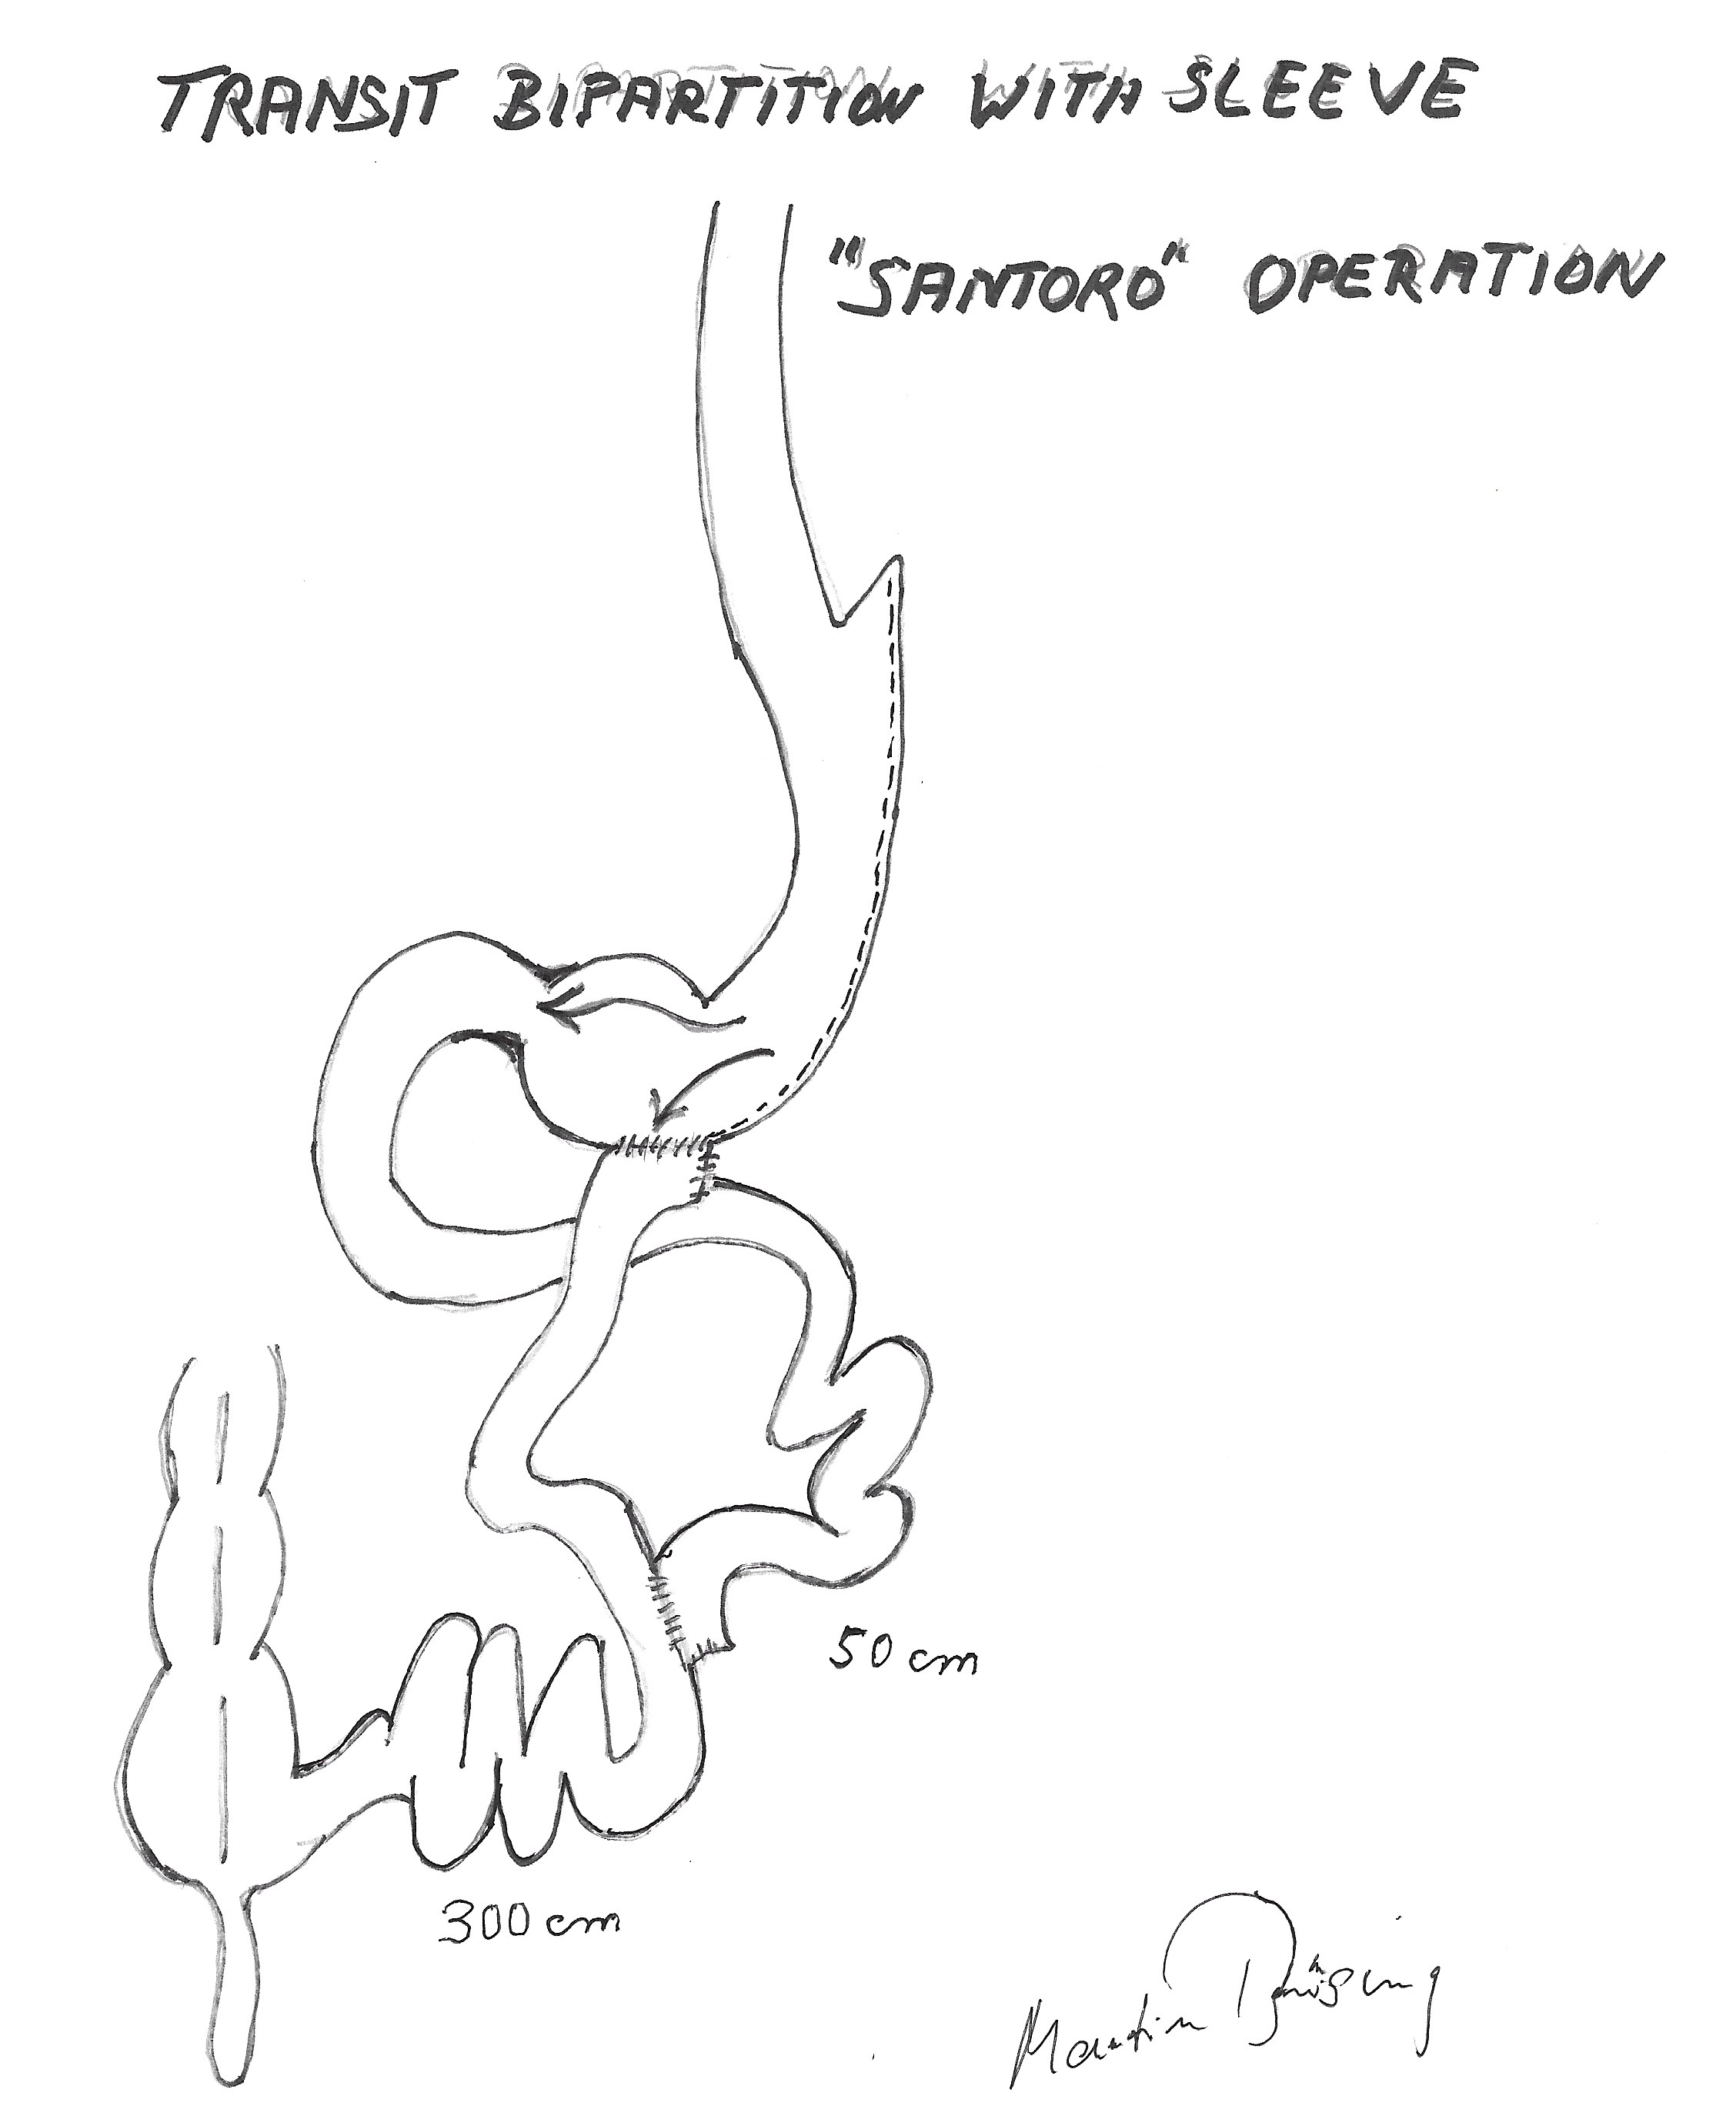 TRANSIT BIPARTITION WITH SLEEVE
"SANTORO" OPERATION
50 cm
300 cm
Martin